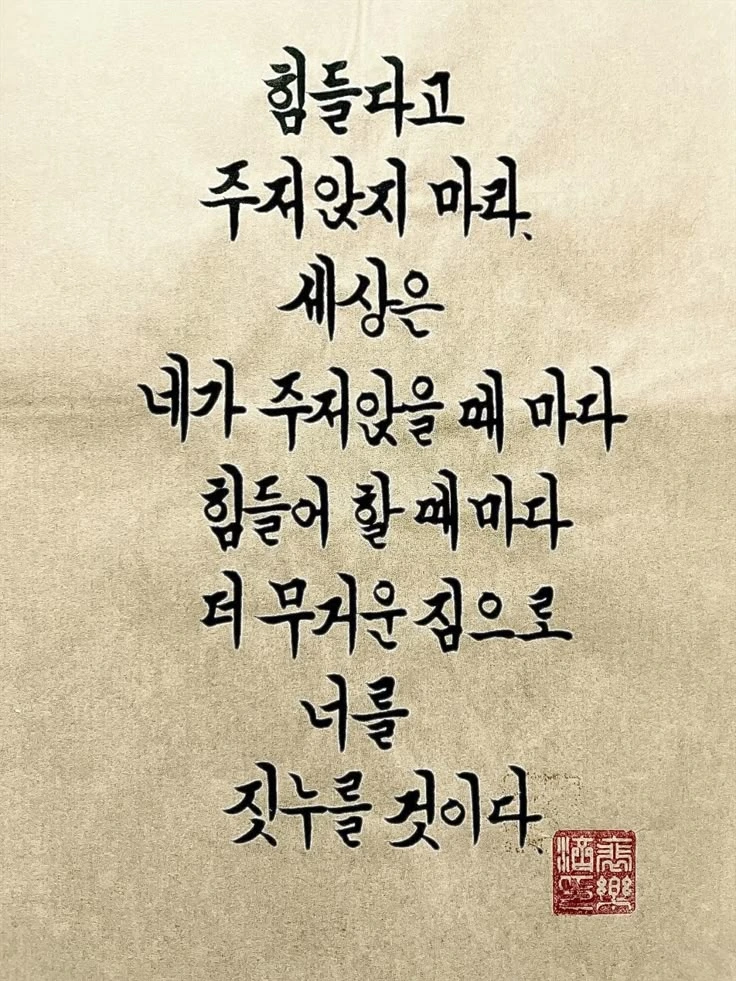 힘들다고
주저앉지 마라.
세상은
네가 주저앉을 때 마다
힘들어 할 때 마다
더 무거운 짐으로
너를
짓누를 것이다.